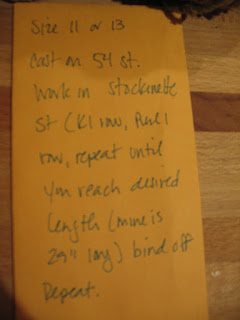 Size 11 or 13
Cast on 54 st.
Work in Stockinette
st (K1 row, Purl 1
row, repeat until
you reach desired
length (mine is
29" long) bind off
Repeat.